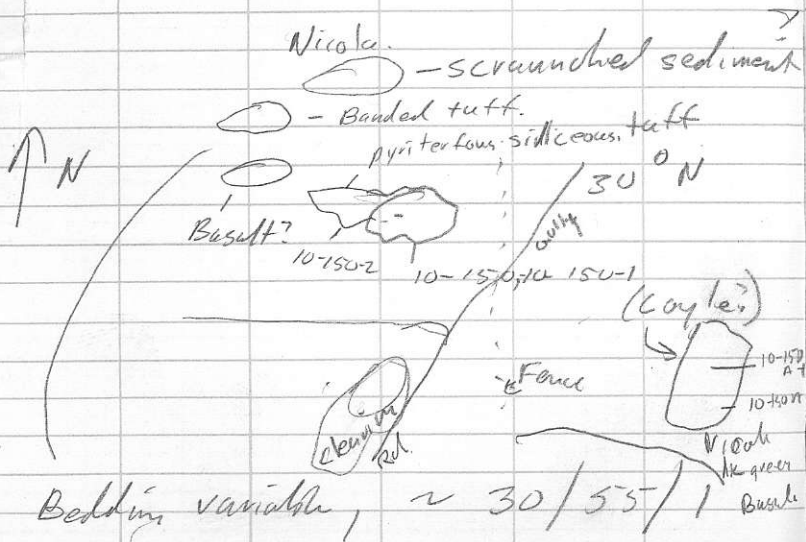 ?
Nicola.
- scraunched sediment
- Banded tuff.
pyriterfous siliceous tuff
N
30° N
Basalt?
gully
10-150-2
10-150,10 150-1
(Coyle?)
10-150
Fence
10-150A
Rd.
Nicola
dk green
Basalt
Bedding variable, ~ 30/55/1